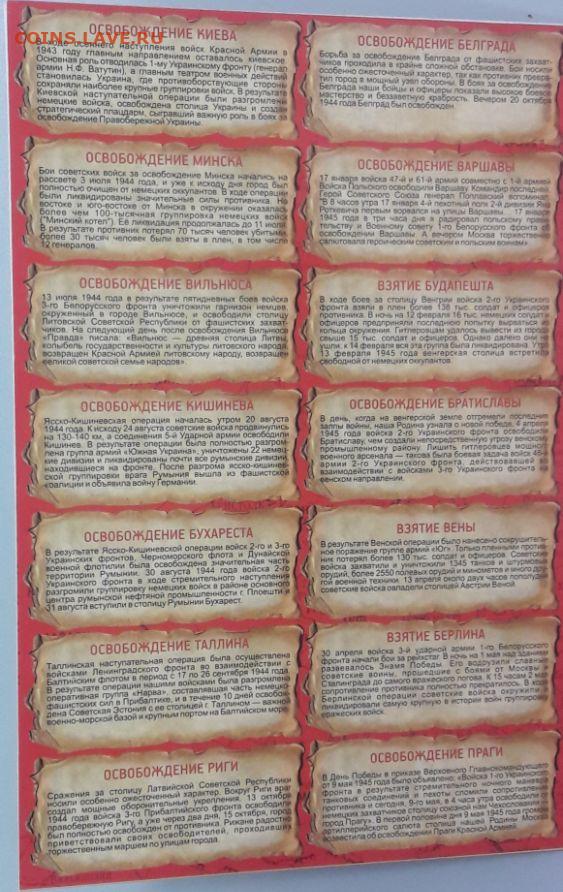 COINS.LAVE.RU
ОСВОБОЖДЕНИЕ КИЕВА
В ходе осеннего наступления войск Красной Армии в
1943 году главным направлением оставалось киевское.
Основная роль отводилась 1-му Украинскому фронту (генерал
армии Н.Ф. Ватутин), а главным театром военных действий
становилась Украина, где противоборствующие стороны
сохраняли наиболее крупные группировки войск. В результате
Киевской наступательной операции были разгромлены
немецкие войска, освобождена столица Украины и создан
стратегический плацдарм, сыгравший важную роль в боях за
освобождение Правобережной Украины.
ОСВОБОЖДЕНИЕ МИНСКА
Бои советских войск за освобождение Минска начались на
рассвете 3 июля 1944 года, и уже к исходу дня город был
полностью очищен от немецких оккупантов. В ходе операции
были ликвидированы значительные силы противника. На
востоке и юго-востоке от Минска в окружении оказалась
более чем 100-тысячная группировка немецких войск
("Минский котел"). Её ликвидация продолжалась до 11 июля.
В результате противник потерял 70 тысяч человек убитыми,
более 30 тысяч человек были взяты в плен, в том числе
12 генералов.
ОСВОБОЖДЕНИЕ ВИЛЬНЮСА
13 июля 1944 года в результате пятидневных боев войска
3-го Белорусского фронта уничтожили гарнизон немцев,
окруженный в городе Вильнюсе, и освободили столицу
Литовской Советской Республики от фашистских захват-
чиков. На следующий день после освобождения Вильнюса
«Правда» писала: «Вильнюс — древняя столица Литвы,
колыбель государственности и культуры литовского народа,
возвращен Красной Армией литовскому народу, возвращен
великой советской семье народов».
ОСВОБОЖДЕНИЕ КИШИНЕВА
Ясско-Кишиневская операция началась утром 20 августа
1944 года. К исходу 24 августа советские войска продвинулись
на 130-140 км, а соединения 5-й Ударной армии освободили
Кишинев. В результате операции была полностью разгром-
лена группа армий «Южная Украина», уничтожены 22 немец-
кие дивизии и ликвидированы почти все румынские дивизии,
находившиеся на фронте. После разгрома ясско-кишинев-
ской группировки врага Румыния вышла из фашистской
коалиции и объявила войну Германии.
ОСВОБОЖДЕНИЕ БУХАРЕСТА
В результате Ясско-Кишиневской операции войск 2-го и 3-го
Украинских фронтов, Черноморского флота и Дунайской
военной флотилии была освобождена значительная часть
территории Румынии. 30 августа 1944 года войска 2-го
Украинского фронта в ходе стремительного наступления
разгромили группировку немецких войск в районе основного
центра румынской нефтяной промышленности г. Плоешти и
31 августа вступили в столицу Румынии Бухарест.
ОСВОБОЖДЕНИЕ ТАЛЛИНА
Таллинская наступательная операция была осуществлена
войсками Ленинградского фронта во взаимодействии с
Балтийским флотом в период с 17 по 26 сентября 1944 года.
В результате операции нашими войсками была разгромлена
оперативная группа «Нарва», составлявшая часть немецко-
фашистских сил в Прибалтике, и в течение 10 дней освобож-
дена Советская Эстония с ее столицей г. Таллином — важной
военно-морской базой и крупным портом на Балтийском море.
ОСВОБОЖДЕНИЕ РИГИ
Сражения за столицу Латвийской Советской Республики
носили особенно ожесточенный характер. Вокруг Риги враг
создал мощные оборонительные укрепления. 13 октября
1944 года войска 3-го Прибалтийского фронта освободили
правобережную Ригу, а уже через два дня, 15 октября, город
был полностью освобожден от противника. Рижане радостно
приветствовали своих освободителей, проходивших
торжественным маршем по улицам города.
ОСВОБОЖДЕНИЕ БЕЛГРАДА
Борьба за освобождение Белграда от фашистских захват-
чиков проходила в крайне сложной обстановке. Бои носили
особенно ожесточенный характер, так как противник превра-
тил город в мощный узел обороны. В боях за освобождение
Белграда наши бойцы и офицеры показали высокое боевое
мастерство и беззаветную храбрость. Вечером 20 октября
1944 года Белград был освобожден.
ОСВОБОЖДЕНИЕ ВАРШАВЫ
17 января войска 47-й и 61-й армий совместно с 1-й армией
Войска Польского освободили Варшаву. Командир последней
Герой Советского Союза генерал Поплавский вспоминал:
"В 8 часов утра 17 января 4-й пехотный полк 2-й дивизии Яна
Роткевича первым ворвался на улицы Варшавы... 17 января
1945 года в три часа дня я радировал польскому прави-
тельству и Военному совету 1-го Белорусского фронта об
освобождении Варшавы. А вечером Москва торжественно
салютовала героическим советским и польским воинам»
ВЗЯТИЕ БУДАПЕШТА
В ходе боев за столицу Венгрии войска 2-го Украинского
фронта взяли в плен более 138 тыс. солдат и офицеров
противника. В ночь на 12 февраля 16 тыс. немецких солдат и
офицеров предприняли последнюю попытку вырваться из
кольца окружения. Гитлеровцам удалось вывести из города
свыше 15 тыс. солдат и офицеров. Однако далеко они не
ушли: к 14 февраля вся эта группа была ликвидирована. Утро
13 февраля 1945 года венгерская столица встретила
свободной от немецких оккупантов.
ОСВОБОЖДЕНИЕ БРАТИСЛАВЫ
В день, когда на венгерской земле отгремели последние
залпы войны, наша Родина узнала о новой победе. 4 апреля
1945 года войска 2-го Украинского фронта освободили
Братиславу, чем создали непосредственную угрозу венскому
промышленному району. Лишить гитлеровцев мощного
военного арсенала — такова была боевая задача войск 46-й
армии 2-го Украинского фронта, действовавшей во
взаимодействии с войсками 3-го Украинского фронта на
венском направлении.
ВЗЯТИЕ ВЕНЫ
В результате Венской операции было нанесено сокрушитель-
ное поражение группе армий «Юг». Только пленными против-
ник потерял более 130 тыс. солдат и офицеров. Советские
войска захватили и уничтожили 1345 танков и штурмовых
орудий, более 2550 полевых орудий и минометов и много дру-
гой военной техники. 13 апреля около двух часов пополудни
советские войска овладели столицей Австрии Веной.
ВЗЯТИЕ БЕРЛИНА
30 апреля войска 3-й ударной армии 1-го Белорусского
фронта начали бои за рейхстаг. В ночь на 1 мая над зданием
развевалось Знамя Победы. Его водрузили славные
советские воины, прошедшие с боями от Москвы и
Сталинграда до самого вражеского логова. К 15 часам 2 мая
сопротивление противника полностью прекратилось. В ходе
Берлинской операции советские войска окружили и
ликвидировали самую крупную в истории войн группировку
вражеских войск.
ОСВОБОЖДЕНИЕ ПРАГИ
В День Победы в приказе Верховного Главнокомандующего
от 9 мая 1945 года было объявлено: «Войска 1-го Украинского
фронта в результате стремительного ночного маневра
танковых соединений и пехоты сломили сопротивление
противника и сегодня, 9-го мая, в 4 часа утра освободили от
немецких захватчиков столицу союзной нам Чехословакии —
город Прагу». В первой половине дня 9 мая 1945 года громом
артиллерийского салюта столица нашей Родины Москва
возвестила об освобождении Праги Красной Армией.